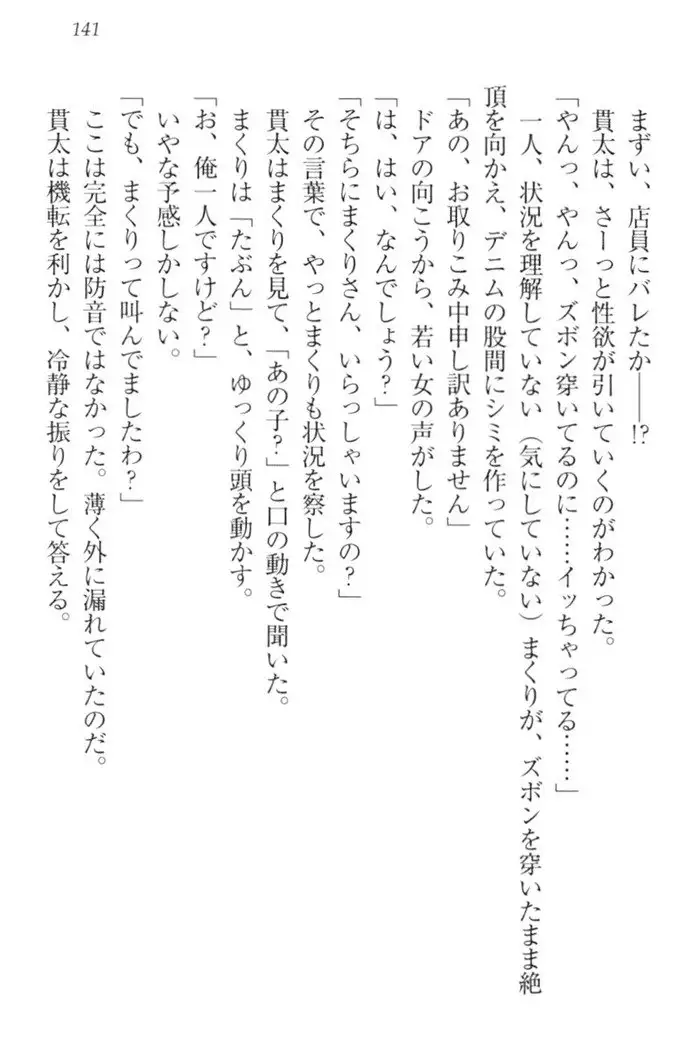 141
まずい、店員にバレたか――!?
貫太は、さーっと性欲が引いていくのがわかった。
「やんっ、やんっ、ズボン穿いてるのに……イッちゃってる……」
一人、状況を理解していない（気にしていない）まくりが、ズボンを穿いたまま絶
頂を向かえ、デニムの股間にシミを作っていた。
「あの、お取りこみ中申し訳ありません」
ドアの向こうから、若い女の声がした。
「は、はい、なんでしょう?」
「そちらにまくりさん、いらっしゃいますの?」
その言葉で、やっとまくりも状況を察した。
貫太はまくりを見て、「あの子?」と口の動きで聞いた。
まくりは「たぶん」と、ゆっくり頭を動かす。
「お、俺一人ですけど?」
いやな予感しかしない。
「でも、まくりって叫んでましたわ?」
ここは完全には防音ではなかった。薄く外に漏れていたのだ。
貫太は機転を利かし、冷静な振りをして答える。